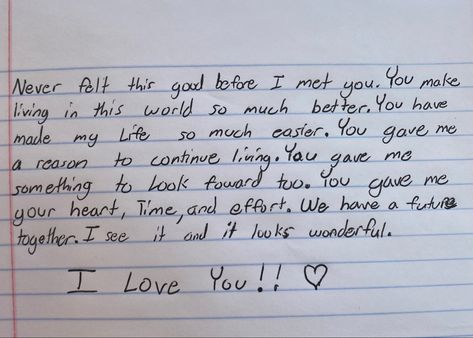 Never felt this good before I met you. You make
living in this world so much better. You have
made my Life so much easier. You gave me
a reason to continue living. You gave me
something to Look foward too. You gave me
your heart, Time, and effort. We have a future
together. I see it and it looks wonderful.
I Love You!! ♡